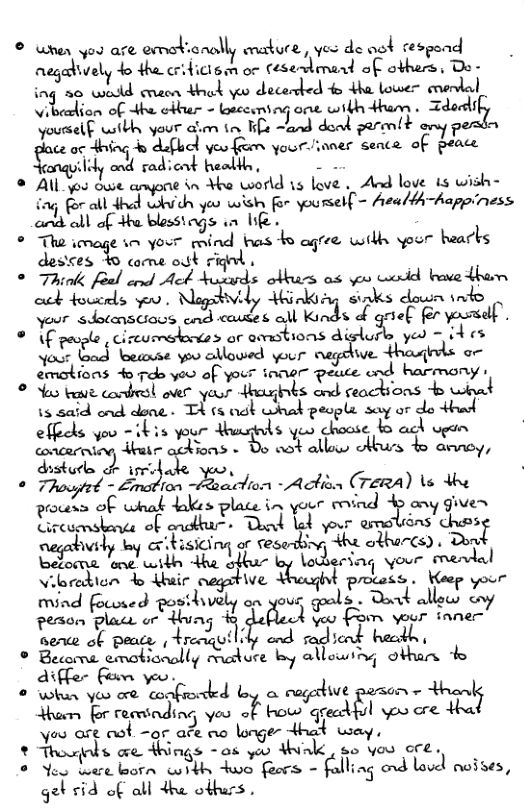 • When you are emotionally mature, you do not respond
negatively to the criticism or resentment of others. Do-
ing so would mean that you decented to the lower mental
vibration of the other - becoming one with them. Identify
yourself with your aim in life - and dont permit any person
place or thing to deflect you from your inner sence of peace
tranquility and radiant health.
• All you owe anyone in the world is love. And love is wish-
ing for all that which you wish for yourself - health-happiness
and all of the blessings in life.
• The image in your mind has to agree with your hearts
desires to come out right.
• Think feel and Act towards others as you would have them
act towards you. Negativity thinking sinks down into
your subconscious and causes all kinds of grief for yourself.
• if people, circumstances or emotions disturb you - it is
your bad because you allowed your negative thoughts or
emotions to rob you of your inner peace and harmony.
• You have control over your thoughts and reactions to what
is said and done. It is not what people say or do that
effects you - it is your thoughts you choose to act upon
concerning their actions. Do not allow others to annoy,
disturb or irritate you.
• Thought - Emotion - Reaction - Action (TERA) is the
process of what takes place in your mind to any given
circumstance of another. Dont let your emotions choose
negativity by critisicing or resenting the other(s). Dont
become one with the other by lowering your mental
vibration to their negative thought process. Keep your
mind focused positively on your goals. Dont allow any
person place or thing to deflect you from your inner
sence of peace, tranquility and radiant heath.
• Become emotionally mature by allowing others to
differ from you.
• when you are confronted by a negative person - thank
them for reminding you of how greatful you are that
you are not - or are no longer that way.
• Thoughts are things - as you think, so you are.
• You were born with two fears - falling and loud noises,
get rid of all the others.